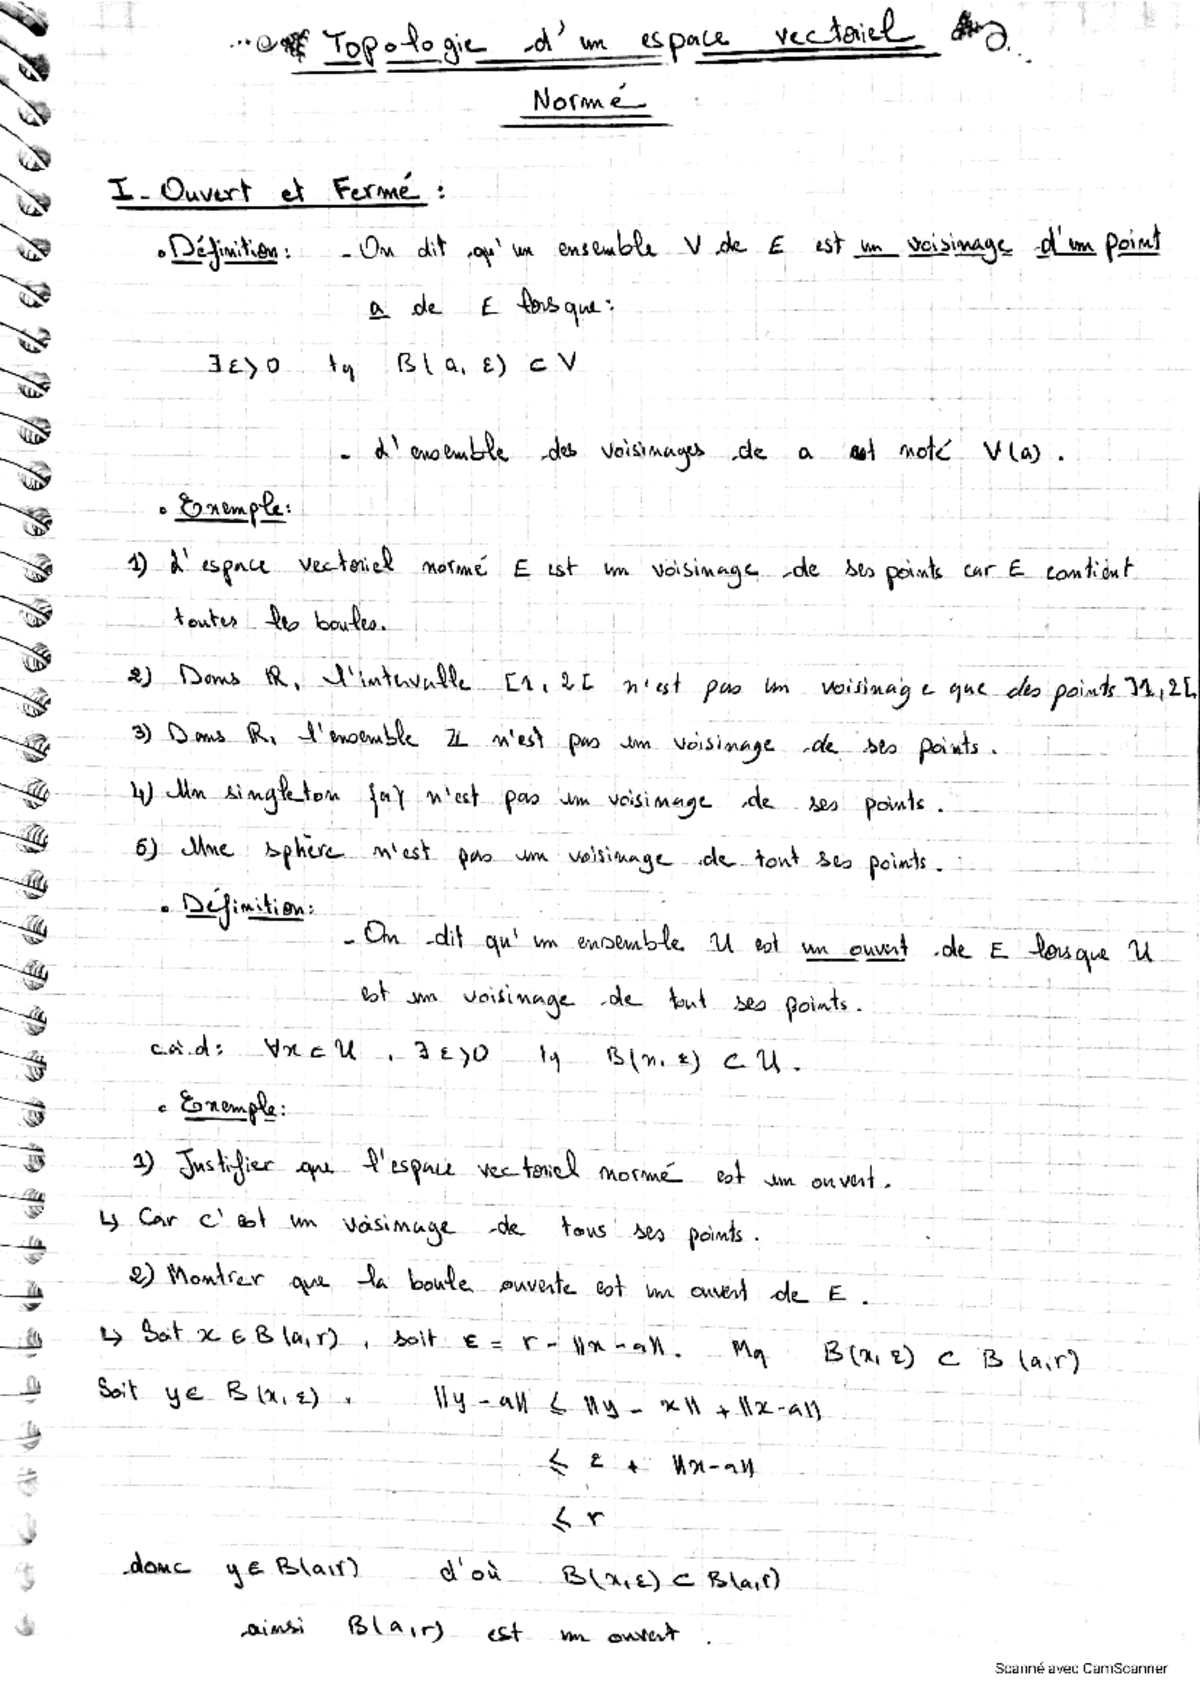 Topologie d'un espace vectoriel
Normé
I- Ouvert et Fermé :
• Définition : - On dit qu'un ensemble V de E est un voisinage d'un point
a de E lorsque :
∃ε>0 tq B(a, ε) ⊂ V
- L'ensemble des voisinages de a est noté V(a).
• Exemple :
1) L'espace vectoriel normé E est un voisinage de ses points car E contient
toutes les boules.
2) Dans ℝ, l'intervalle [1, 2[ n'est pas un voisinage que des points ]1, 2[
3) Dans ℝ, l'ensemble ℤ n'est pas un voisinage de ses points.
4) Un singleton {a} n'est pas un voisinage de ses points.
5) Une sphère n'est pas un voisinage de tout ses points.
• Définition :
- On dit qu'un ensemble U est un ouvert de E lorsque U
est un voisinage de tout ses points.
cà.d : ∀x ⊂ U, ∃ε>0 tq B(x, ε) ⊂ U.
• Exemple :
1) Justifier que l'espace vectoriel normé est un ouvert.
↳ Car c'est un voisinage de tous ses points.
2) Montrer que la boule ouverte est un ouvert de E.
↳ Soit x ∈ B(a,r), soit ε = r - ||x-a||. Mq B(x, ε) ⊂ B(a,r)
Soit y ∈ B(x, ε), ||y - a|| ≤ ||y - x|| + ||x-a||
≤ ε + ||x-a||
≤ r
donc y ∈ B(a,r) d'où B(x,ε) ⊂ B(a,r)
ainsi B(a,r) est un ouvert.
Scanné avec CamScanner